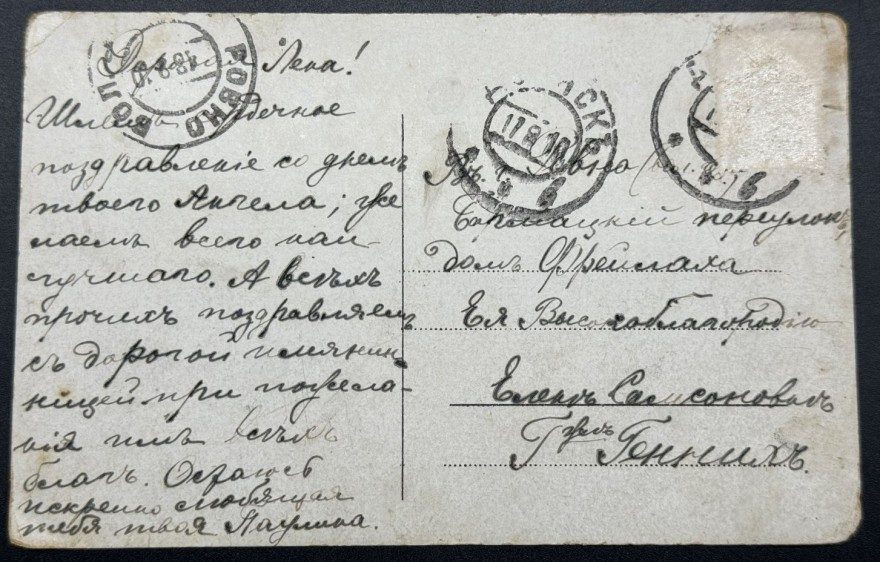 Дорогая Лена!
Шлемъ сердечное
поздравленіе со днемъ
твоего Ангела; же
лаемъ всего наи-
лучшаго. А всѣхъ
прочихъ поздравляемъ
съ дорогой имянин
ницей при пожела-
нія имъ всѣхъ
благъ. Остаюсь
искренно любящая
тебя твоя Паулина.
РОВНО ВОЛ
18 8 10
17 8 10
б
б
Въ г. Ровно
переулокъ,
домъ Фрейлаха
Ея Высокоблагородію
Еленѣ Самсоновнѣ
Г-жѣ Геннихъ.